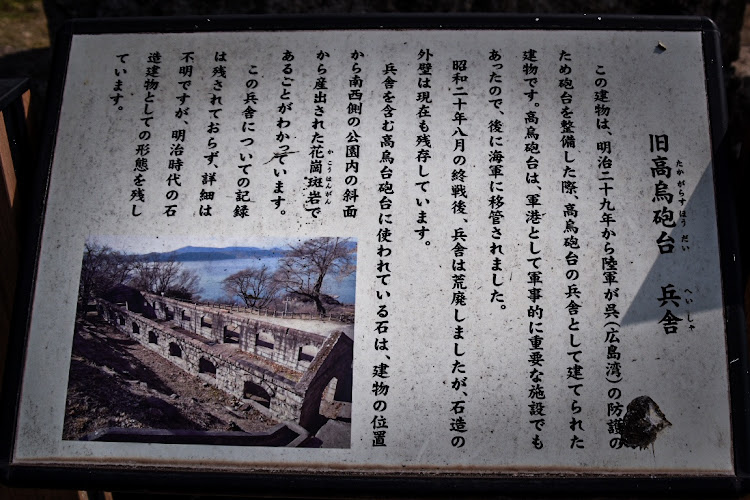 旧高烏砲台　兵舎
たかがらすほうだい　へいしゃ
この建物は、明治二十九年から陸軍が呉（広島湾）の防護の
ため砲台を整備した際、高烏砲台の兵舎として建てられた
建物です。高烏砲台は、軍港として軍事的に重要な施設でも
あったので、後に海軍に移管されました。
昭和二十年八月の終戦後、兵舎は荒廃しましたが、石造の
外壁は現在も残存しています。
兵舎を含む高烏台砲台に使われている石は、建物の位置
から南西側の公園内の斜面
から産出された花崗斑岩で
かこうはんがん
あるごとがわかっています。
この兵舎についての記録
は残されておらず、詳細は
不明ですが、明治時代の石
造建物としての形態を残し
ています。